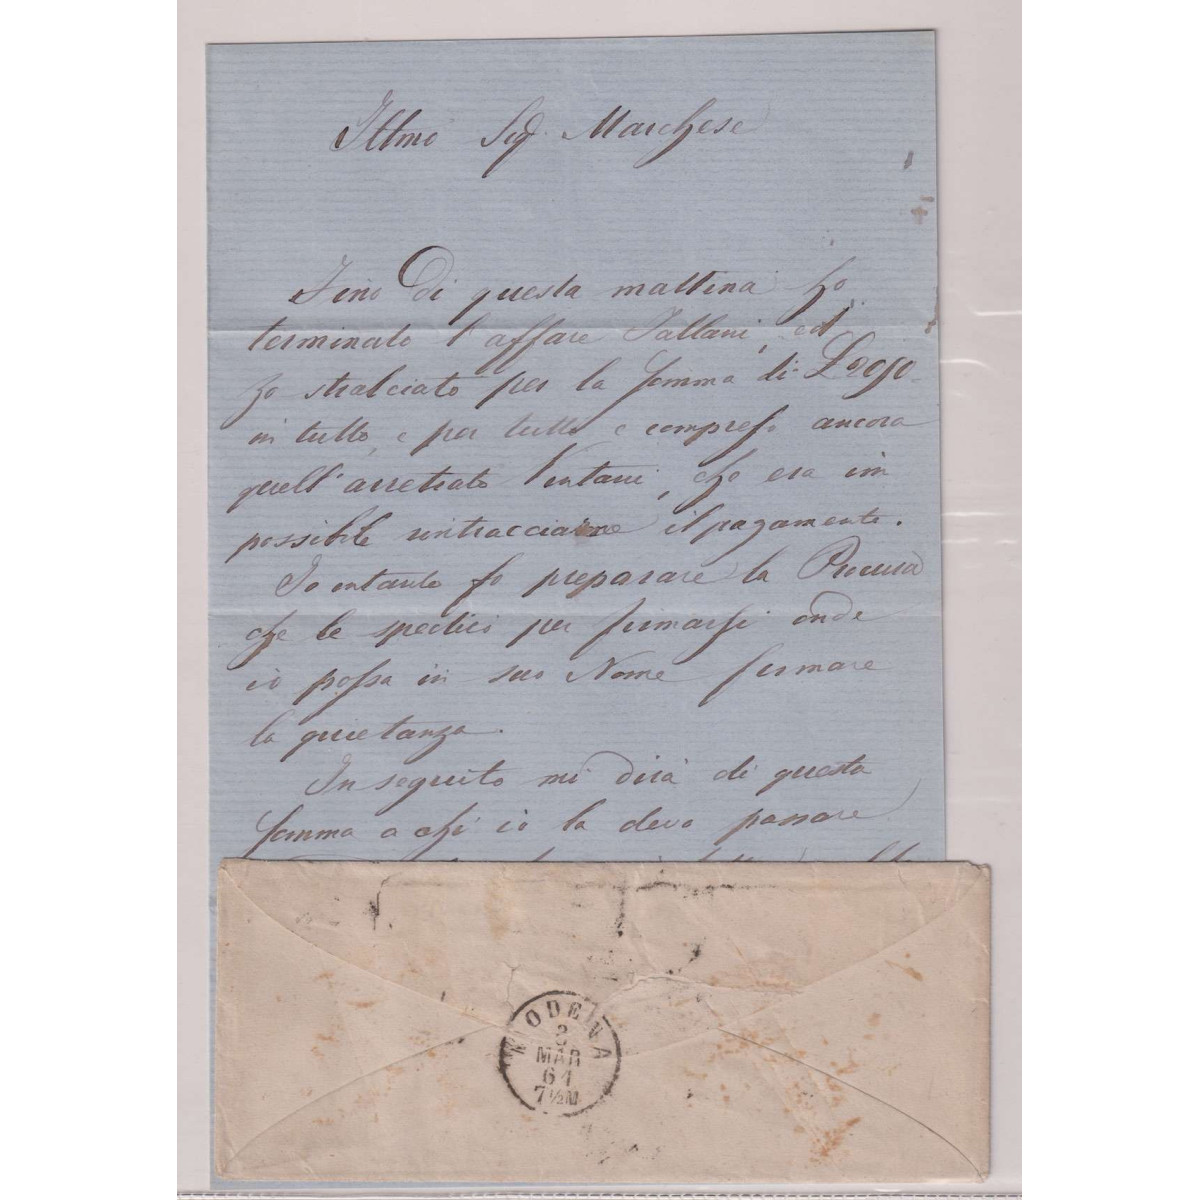 Illmo Sig. Marchese
Fino di questa mattina ho
terminato l'affare Tallani, ed
ho stralciato per la somma di
in tutto, e per tutto e compreso ancora
quell'arretrato che era im
possibile il pagamento.
Io intanto fo preparare la Procura
che le spedirò per firmarsi onde
io possa in suo Nome firmare
la quietanza.
In seguito mi dirà di questa
somma a chi io la devo passare
MODENA
MAR
7½M